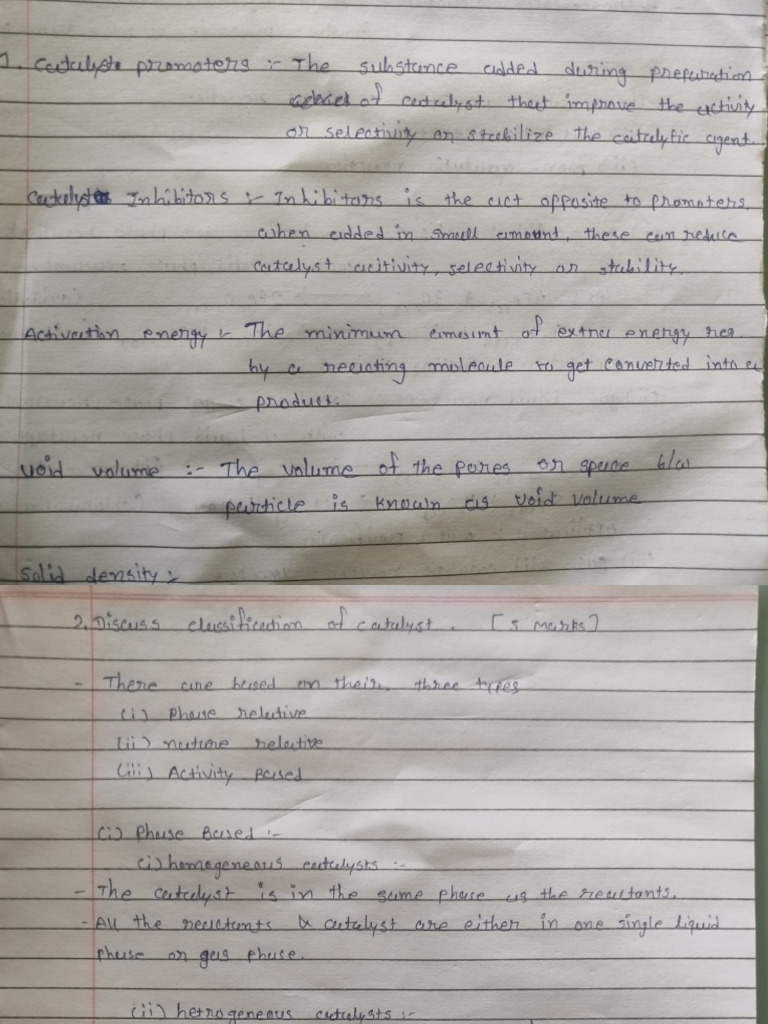 1. Catalyst promoters :- The substance added during preparation
of catalyst that improve the activity
or selectivity or stabilize the catalytic agent.
Catalyst Inhibitors :- Inhibitors is the act opposite to promoters.
when added in small amount, these can reduce
catalyst acitivity, selectivity or stability.
Activation energy :- The minimum amount of extra energy req
by a reacting molecule to get converted into a
product.
Void volume :- The volume of the pores or space b/w
particle is known as void volume
Solid density :-
2. Discuss classification of catalyst. [5 marks]
- There are based on their, three types
(i) Phase relative
(ii) nature relative
(iii) Activity Based
(i) Phase Based :-
(i) homogeneous catalysts :-
- The catalyst is in the same phase as the reactants.
- All the reactants & catalyst are either in one single liquid
phase or gas phase.
(ii) hetrogeneous catalysts :-